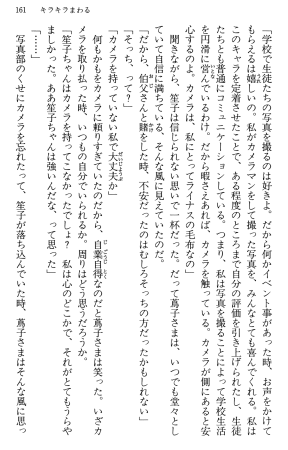 161　キラキラまわる
「学校で生徒たちの写真を撮るのは好きよ。だから何かイベント事があった時、お声をかけて
もらえるは嬉しいの。私がカメラマンをして撮った写真を、みんなとても喜んでくれる。私は
このキャラを定着させたことで、ある程度のところまで自分の評価を引き上げられたし、生徒
たちとも普通にコミュニケーションしている。つまり、私は写真を撮ることによって学校生活
を円滑に営んでいるわけ。だから暇さえあれば、カメラを触っている。カメラが側にあると安
心するのよ。カメラは、私にとってライナスの毛布なの」
聞きながら、笙子は信じられない思いで一杯だった。だって蔦子さまは、いつでも堂々とし
ていて自信に満ちている、そんな風に見えていたのだ。
「だから、伯父さんと賭をした時、不安だったのはむしろそっちの方だったかもしれない」
「そっち、って？」
「カメラを持っていない私で大丈夫か」
何もかもをカメラに頼りすぎていたのだから、自業自得なのだと蔦子さまは笑った。いざカ
メラを取り払った時、いつもの自分でいられるか。周りはどう思うだろうか。
「笙子ちゃんはカメラを持ってこなかったでしょ？　私は心のどこかで、それがとてもうらや
ましかった。ああ笙子ちゃんは強いんだな、って思った」
「……」
写真部のくせにカメラを忘れたって、笙子が落ち込んでいた時、蔦子さまはそんな風に思っ